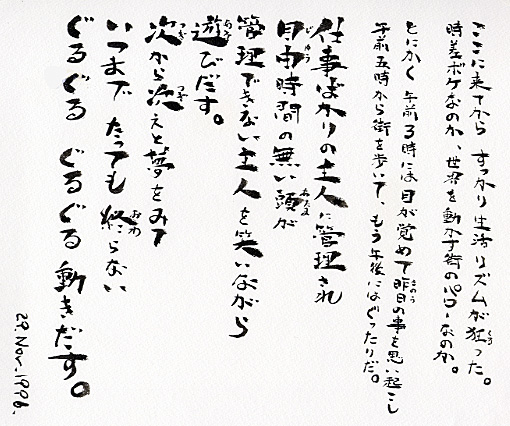 ここに来てから すっかり生活リズムが狂った。
時差ボケなのか、世界を動かす街のパワーなのか。
とにかく 午前3時には目が覚めて昨日の事を思い起こし
午前五時から街を歩いて、もう午後にはぐったりだ。
仕事ばかりの主人に管理され
自由時間の無い頭が
管理できない主人を笑いながら
遊びだす。
次から次えと夢をみて
いつまで たっても 終らない
ぐるぐる ぐるぐる 動きだす。
29.Nov.1996.